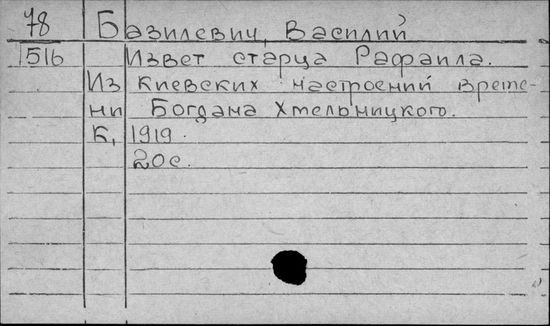 78 Базилевич, Василий
1516 Извет старца Рафаила.
Из Киевских настроений време-
ни Богдана Хмельницкого.
К., 1919.
20с.